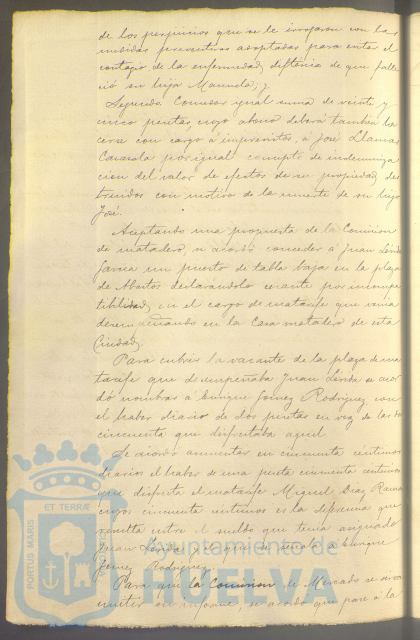 de los perjuicios que se le irrogaron con las
medidas preventivas adoptadas para evitar el
contagio de la enfermedad difteria de que falle
ció su hija Manuela; y
Segundo. Conceder igual suma de veinte y
cinco pesetas, cuyo abono deberá tambien ha
cerse con cargo á imprevistos, á José Llamas
por igual concepto de indemniza
cion del valor de efectos de su propiedad des
truidos con motivo de la muerte de su hijo
José.
Aceptando una propuesta de la Comision
de matadero, se acordó conceder á Juan
Garcia un puesto de tabla baja en la plaza
de Abastos declarándole cesante por incompa
tibilidad, en el cargo de matarife que venia
desempeñando en la Casa matadero de esta
Ciudad.
Para cubrir la vacante de la plaza de ma
tarife que desempeñaba Juan se acor
dó nombrar á Enrique Gomez Rodriguez, con
el haber diario de dos pesetas en vez de las dos
cincuenta que disfrutaba aquel.
Se acordó aumentar en cincuenta centimos
diarios el haber de una peseta cincuenta centimos
que disfruta el matarife Miguel Diaz
cuyos cincuenta centimos es la diferencia que
resulta entre el sueldo que tenia asignado
Juan y el que se señala á Enrique
Gomez Rodriguez.
Para que la Comision de Mercado se sirva
emitir su informe, se acordó que pase á la
PORTUS MARIS ET TERRÆ CUSTODIA
Ayuntamiento de
HUELVA